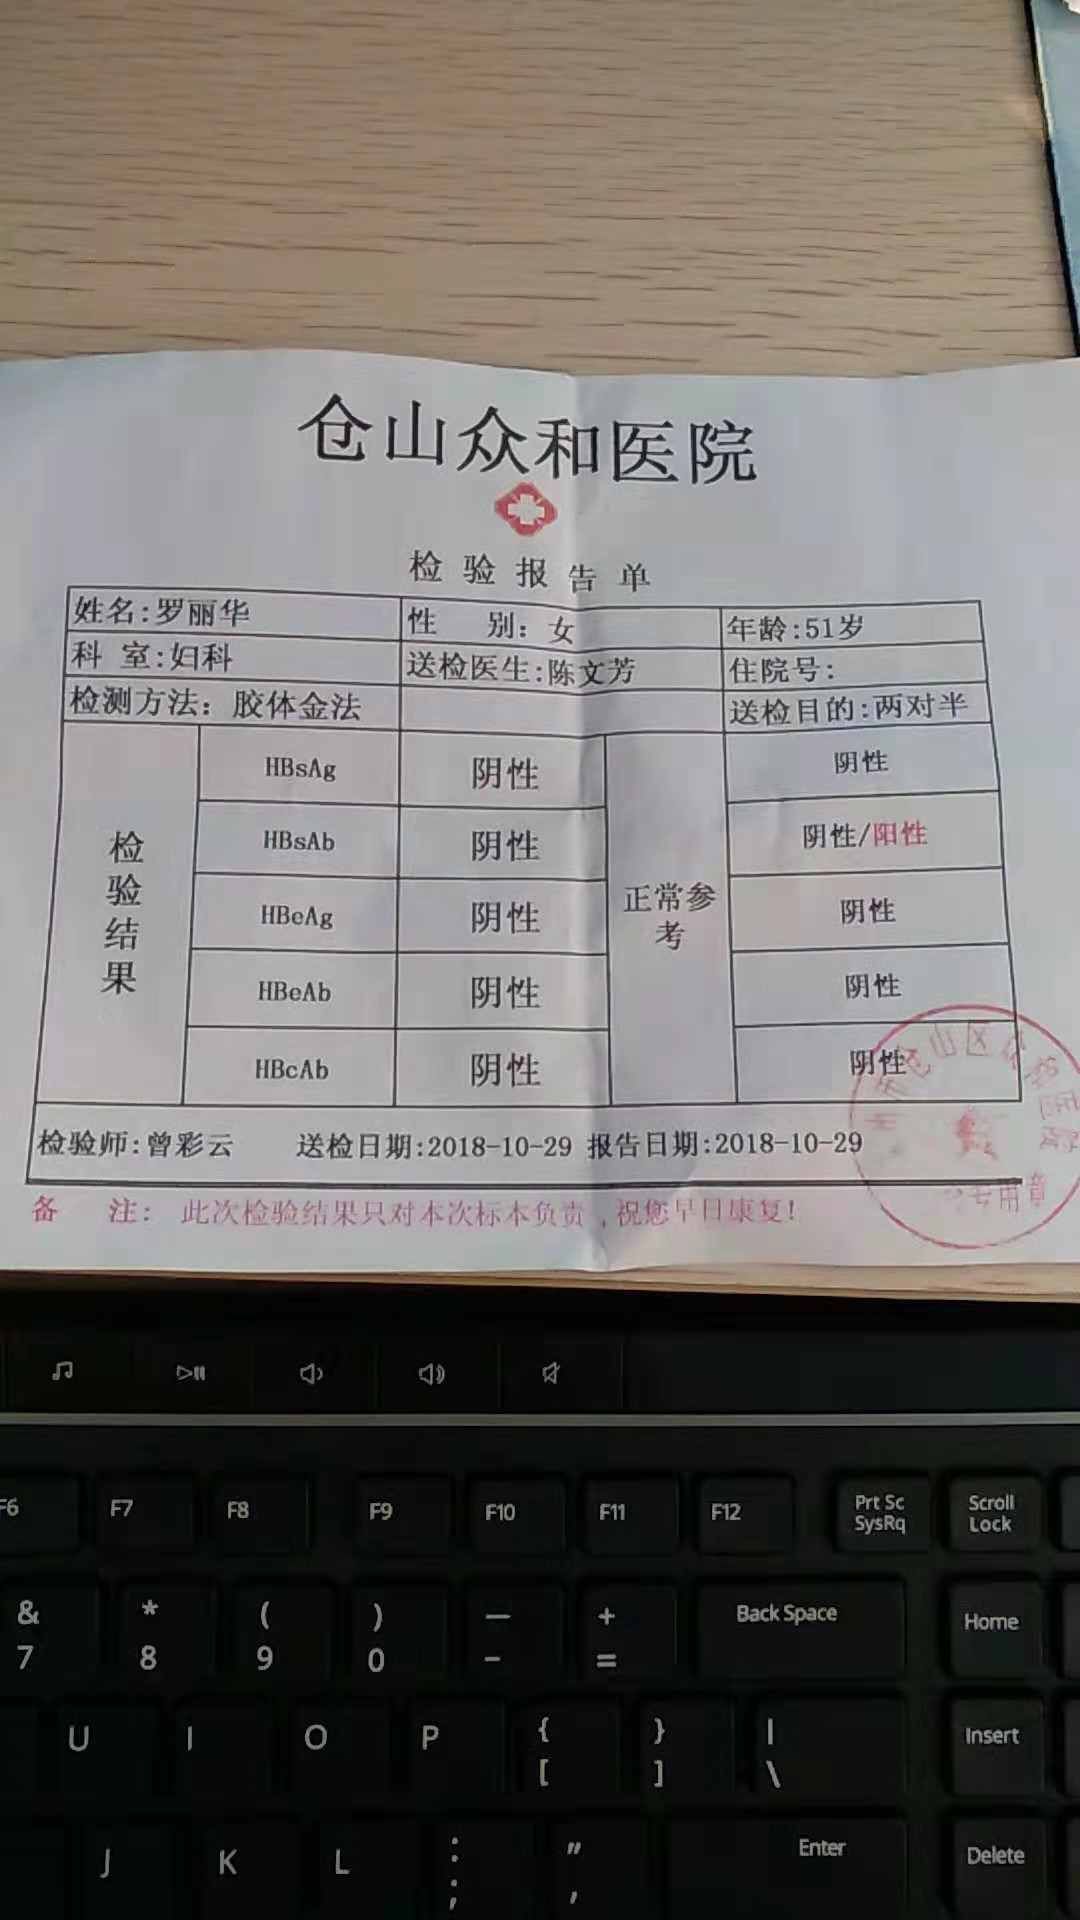 仓山众和医院
检验报告单
姓名:罗丽华 性 别: 女 年龄:51岁
科 室:妇科 送检医生:陈文芳 住院号:
检测方法: 胶体金法 送检目的:两对半
检验结果
HBsAg 阴性 阴性
HBsAb 阴性 阴性/阳性
正常参考
HBeAg 阴性 阴性
HBeAb 阴性 阴性
HBcAb 阴性 阴性
仓山区
专用章
检验师:曾彩云 送检日期:2018-10-29 报告日期:2018-10-29
备 注: 此次检验结果只对本次标本负责,祝您早日康复!
F6 F7 F8 F9 F10 F11 F12 Prt Sc SysRq Scroll Lock
& 7 * 8 ( 9 ) 0 — - + = Back Space Home
U I O P { [ } ] | \ Insert
J K L : ; " , Enter Delete